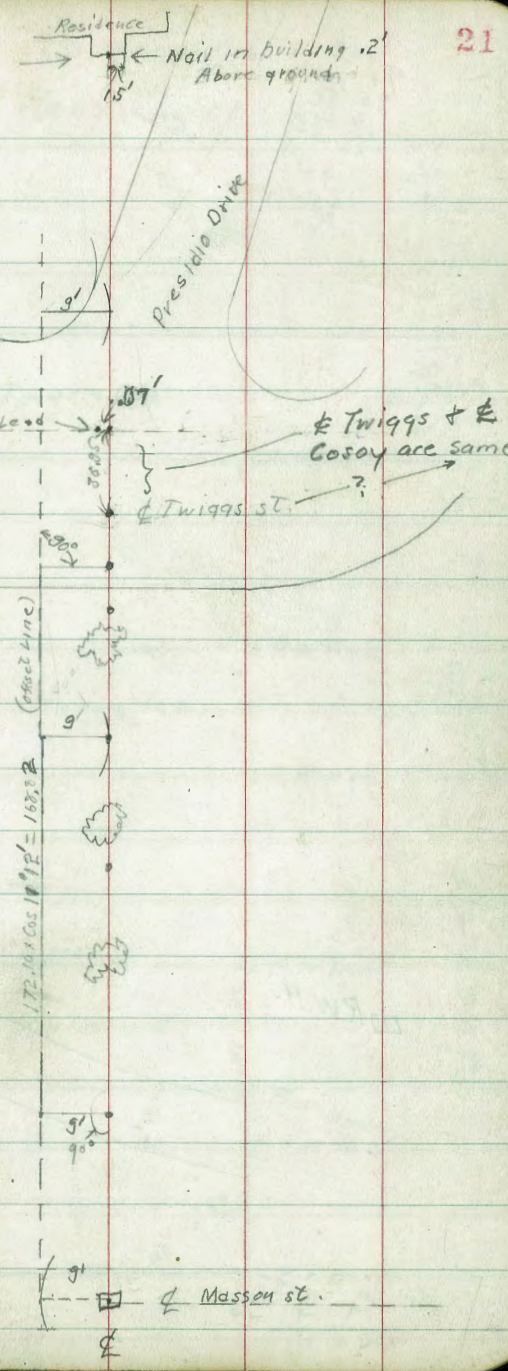 21
Residence
Nail in building .2'
Above ground
15'
Presidio Drive
9'
.07'
Lead
℄ Twiggs & ℄
Cosoy are same
?
℄ Twiggs st.
90°
(offset Line)
9'
172.10 x Cos 11°12' = 168.82
9'
90°
9'
℄ Masson st.
℄